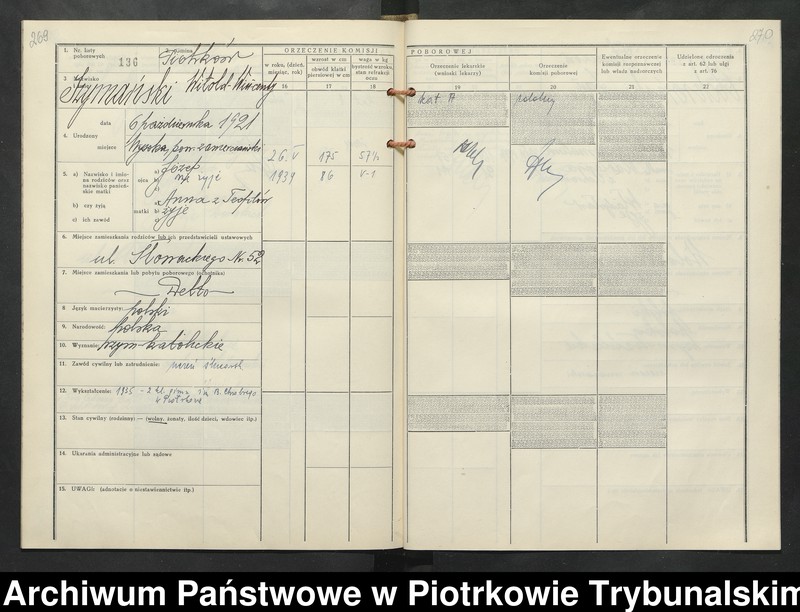 269
270
1. Nr. listy poborowych 136
2. Gmina Piotrków
3. Nazwisko Szymański Witold Wincenty
ORZECZENIE KOMISJI POBOROWEJ
w roku, (dzień, miesiąc, rok)
wzrost w cm
obwód klatki piersiowej w cm
waga w kg
bystrość wzroku, stan refrakcji oczu
Orzeczenie lekarskie (wnioski lekarzy)
Orzeczenie komisji poborowej
Ewentualne orzeczenie komisji rozpoznawczej lub władz nadzorczych
Udzielone odroczenia z art. 62 lub ulgi z art. 76
16 17 18 19 20 21 22
kat. A
zdolny
4. Urodzony
data 6 października 1921
miejsce
26. V 1939
175
86
57½
V-1
5. a) Nazwisko i imiona rodziców oraz nazwisko panieńskie matki
b) czy żyją
c) ich zawód
ojca a) Józef
b) nie żyje
c)
matki a) Anna z Teofilów
b) żyje
c)
6. Miejsce zamieszkania rodziców lub ich przedstawicieli ustawowych
ul. Słowackiego Nr. 52
7. Miejsce zamieszkania lub pobytu poborowego (ochotnika)
Detto
8 Język macierzysty: polski
9. Narodowość: polska
10. Wyznanie: rzym-katolickie
11. Zawód cywilny lub zatrudnienie: uczeń
12. Wykształcenie: 1935 - 2 kl. gimn. im B. Chrobrego
w Piotrkowie
13. Stan cywilny (rodzinny): — (wolny, żonaty, ilość dzieci, wdowiec itp.)
14. Ukarania administracyjne lub sądowe
15. UWAGI: (adnotacje o niestawiennictwie itp.)
Archiwum Państwowe w Piotrkowie Trybunalskim